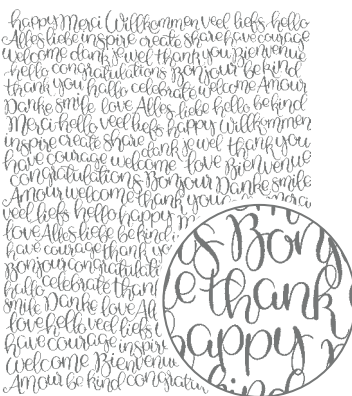 happy Merci Willkommen veel liefs hello
Alles liebe inspire create share have courage
welcome dank je wel thank you Bienvenue
hello congratulations Bonjour be kind
thank you hallo celebrate welcome Amour
Danke smile love Alles liebe hallo be kind
Merci hello veel liefs happy Willkommen
inspire create share dank je wel thank you
have courage welcome love Bienvenue
congratulations Bonjour Danke smile
Amour welcome thank you
veel liefs hello happy
love Alles liebe be kind
have courage thank you
Bonjour congratulations
hallo celebrate than
smile Danke love All
love hello veel liefs
have courage inspire
welcome Bienvenu
Amour be kind congratu
s Bonj
e thank
happy
kind